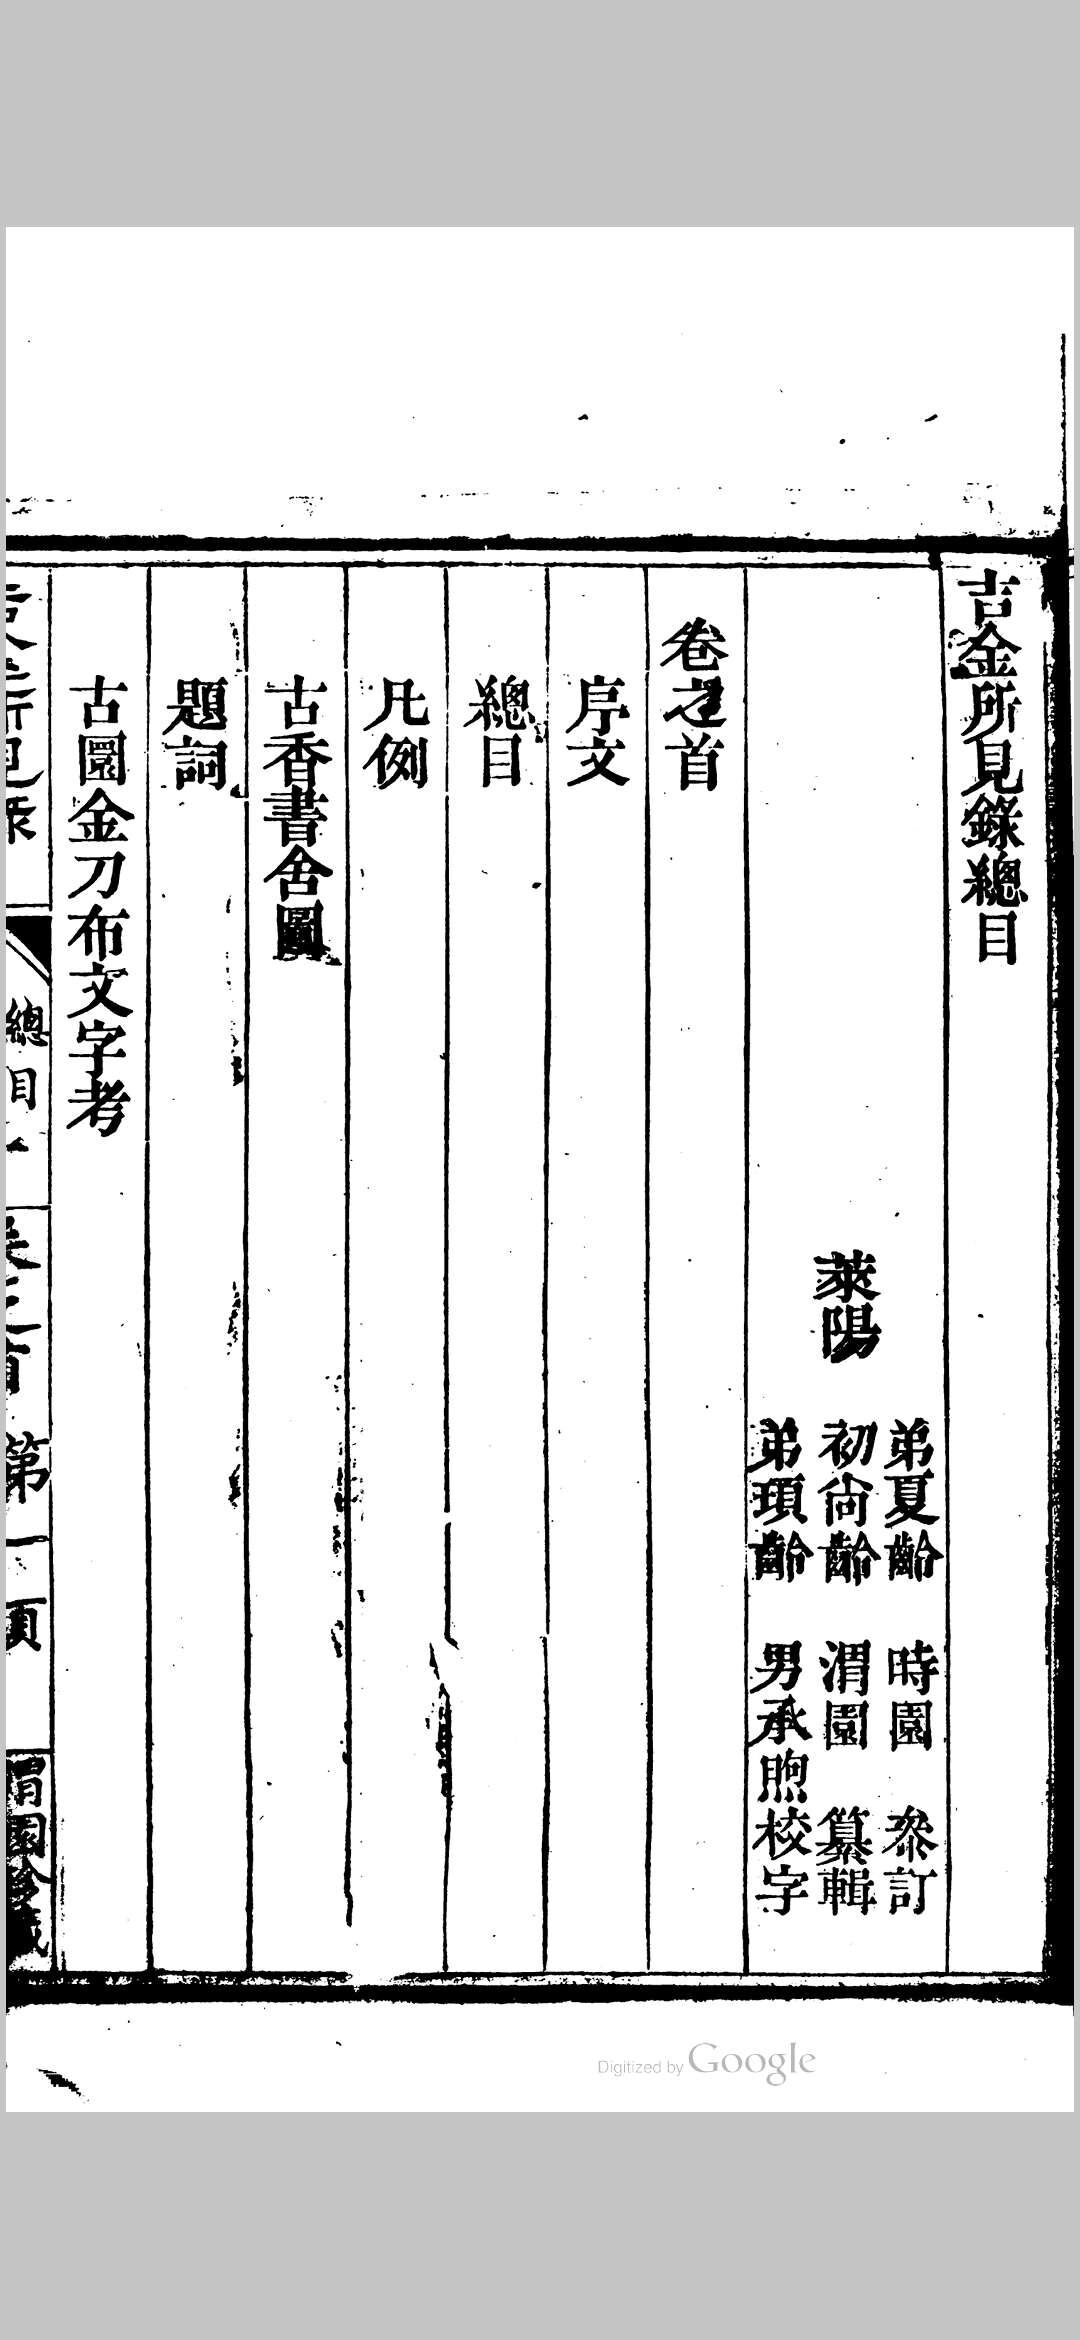 吉金所見錄總目
弟夏齡 時園 叅訂
萊陽 初尙齡 渭園 纂輯
弟頊齡 男承煦校字
卷之首
序文
總目
凡例
古香書舍圖
題詞
古圜金刀布文字考
總目
卷之首
第一頁
渭園珍藏
Digitized by Google